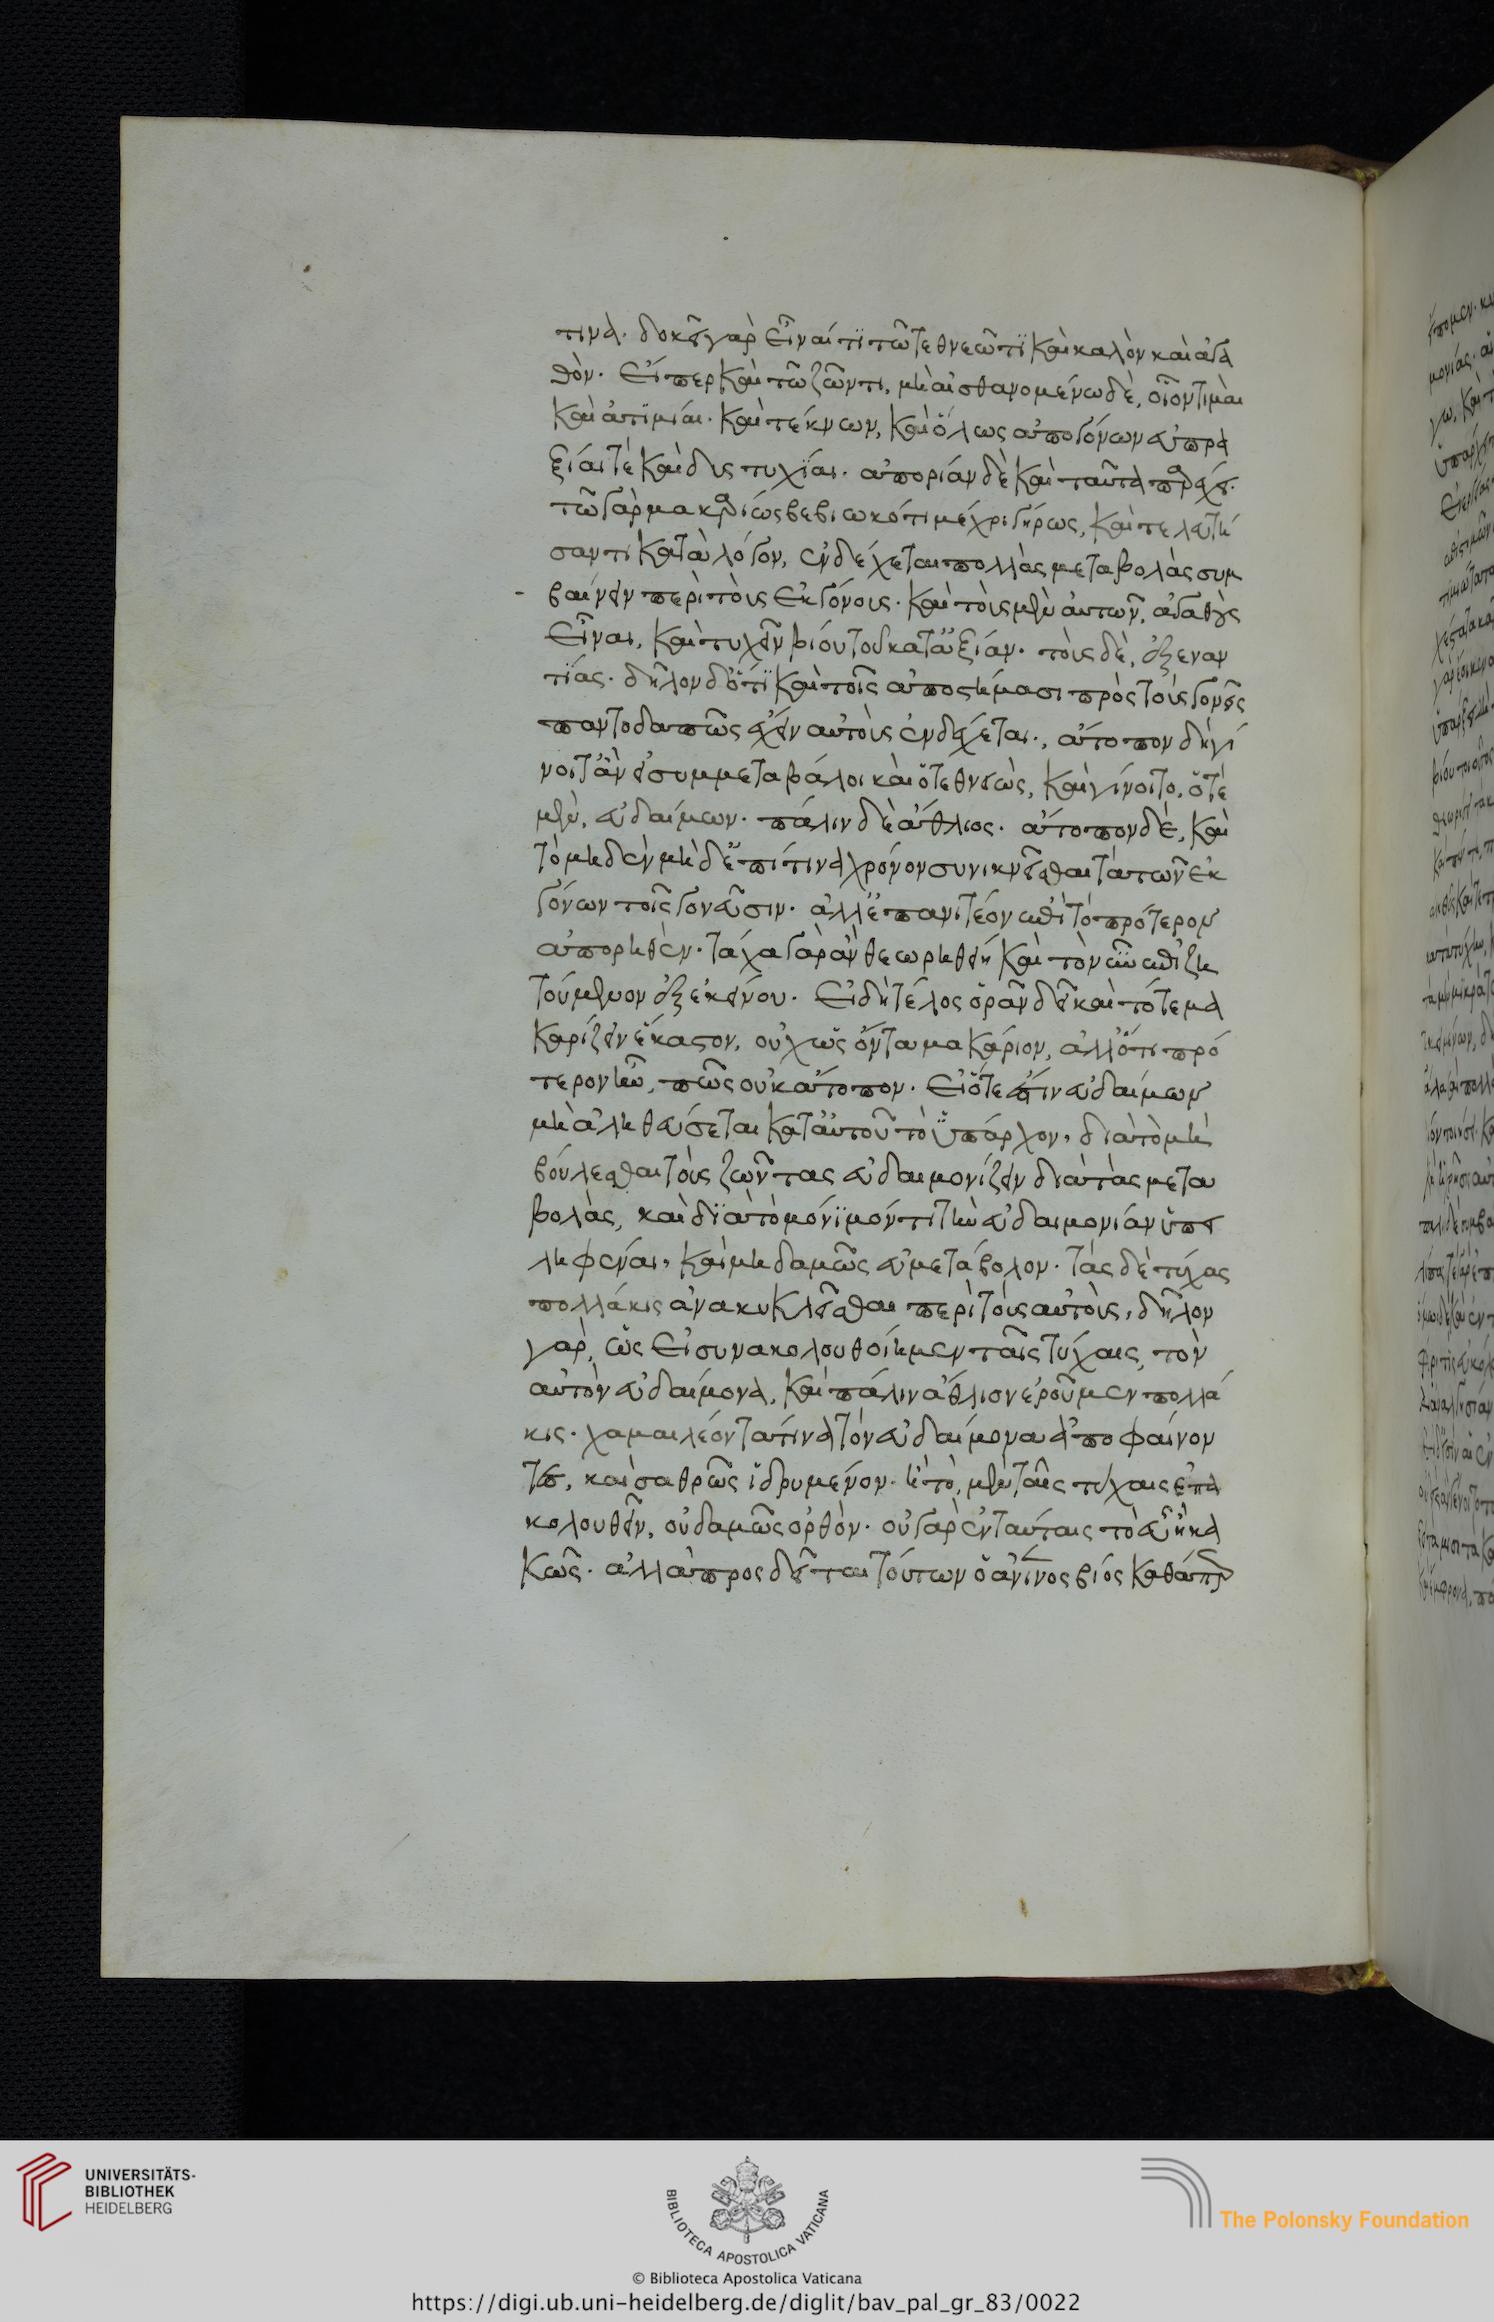 τινά. δοκεῖ γὰρ εἶναί τϊ τῶ τεθνεῶτϊ καὶ καλὸν καὶ ἀγα
θόν. εἴπερ καὶ τῶ ζῶντι, μὴ αἰσθανομένω δὲ, οἷον τιμαὶ
καὶ ἀτϊμίαι. καὶ τέκνων, καὶ ὅλως ἀπογόνων εὐπρα
ξίαι τὲ καὶ δυςτυχΐαι. ἀπορίαν δὲ καὶ ταῦτα παρέχει.
τῶ γὰρ μακαρίως βεβιωκότι μέχρι γήρως, καὶ τελευτή
σαντι κατὰ λόγον, ἐνδέχεται πολλὰς μεταβολὰς συμ
βαίνειν περὶ τοὺς ἐκγόνους. καὶ τοὺς μὲν αὐτῶν, ἀγαθοὺς
εἶναι, καὶ τυχεῖν βίου τοῦ κατ' ἀξίαν. τοὺς δὲ, ἐξεναν
τΐας. δῆλον δ' ὅτϊ καὶ τοῖς ἀποστήμασι πρὸς τοὺς γονεῖς
παντοδαπῶς ἔχειν αὐτοὺς ἐνδέχεται., ἄτοπον δὴ γί
νοιτ' ἂν εἰ συμμεταβάλοι καὶ ὁ τεθνεὼς, καὶ γίνοιτο, ὁτὲ
μὲν, εὐδαίμων. πάλιν δὲ ἄθλιος. ἄτοπον δὲ, καὶ
τὸ μηδὲν μὴδ' ἐπί τινα χρόνον συνικνεῖσθαι τὰ τῶν ἐκ
γόνων τοῖς γονεῦσιν. ἀλλ' ἐπανιτέον ἐπὶ τὸ πρότερον
ἀπορηθέν. τάχα γὰρ ἂν θεωρηθείη καὶ τὸ νῦν ἐπιζη
τούμενον ἐξ ἐκείνου. εἰ δὴ τέλος ὁρᾶν δεῖ καὶ τότε μα
καρίζειν ἕκαστον, οὐχ ὡς ὄντα μακάριον, ἀλλ' ὅτι πρό
τερον ἦν, πῶς οὐκ ἄτοπον. εἰ ὅτε ἐστὶν εὐδαίμων
μὴ ἀληθεύσεται κατ' αὐτοῦ τὸ ὑπάρχον, διὰ τὸ μὴ
βούλεσθαι τοὺς ζῶντας εὐδαιμονίζειν διὰ τὰς μετα
βολὰς, καὶ δϊὰ τὸ μόνϊμόν τι τὴν εὐδαιμονίαν ὑπει
ληφέναι, καὶ μηδαμῶς εὐμετάβολον. τὰς δὲ τύχας
πολλάκις ἀνακυκλεῖσθαι περὶ τοὺς αὐτοὺς, δῆλον
γὰρ, ὡς εἰ συνακολουθοίημεν ταῖς τύχαις, τὸν
αὐτὸν εὐδαίμονα, καὶ πάλιν ἄθλιον ἐροῦμεν πολλά
κις. χαμαιλέοντά τινα τὸν εὐδαίμονα ἀποφαίνον
τες, καὶ σαθρῶς ἱδρυμένον. ἢ τὸ, μὲν ταῖς τύχαις ἐπα
κολουθεῖν, οὐδαμῶς ὀρθόν. οὐ γὰρ ἐν ταύταις τὸ εὖ ἢ κα
κῶς. ἀλλὰ προςδεῖται τούτων ὁ ἀνίνος βίος καθάπερ